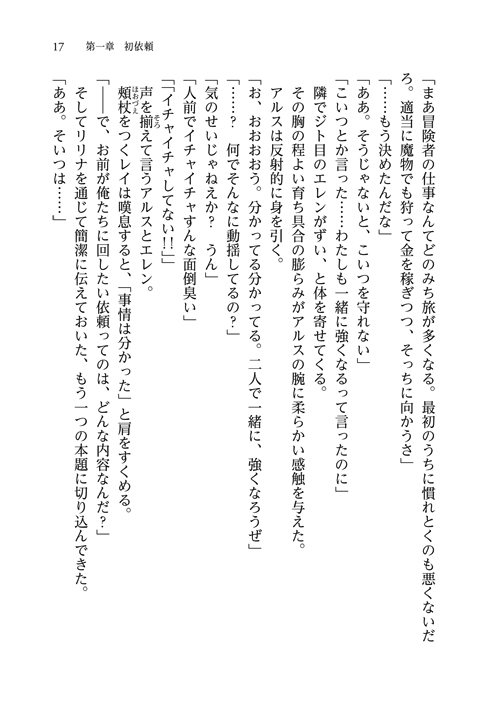 17　第一章　初依頼
「まあ冒険者の仕事なんてどのみち旅が多くなる。最初のうちに慣れとくのも悪くないだ
ろ。適当に魔物でも狩って金を稼ぎつつ、そっちに向かうさ」
「……もう決めたんだな」
「ああ。そうじゃないと、こいつを守れない」
「こいつとか言った……わたしも一緒に強くなるって言ったのに」
隣でジト目のエレンがずい、と体を寄せてくる。
その胸の程よい育ち具合の膨らみがアルスの腕に柔らかい感触を与えた。
アルスは反射的に身を引く。
「お、おおおおう。分かってる分かってる。二人で一緒に、強くなろうぜ」
「……？　何でそんなに動揺してるの？」
「気のせいじゃねえか？　うん」
「人前でイチャイチャすんな面倒臭い」
「「イチャイチャしてない!!」」
声を揃そろえて言うアルスとエレン。
頬杖ほおづえをつくレイは嘆息すると、「事情は分かった」と肩をすくめる。
「――で、お前が俺たちに回したい依頼ってのは、どんな内容なんだ？」
そしてリリナを通じて簡潔に伝えておいた、もう一つの本題に切り込んできた。
「ああ。そいつは……」